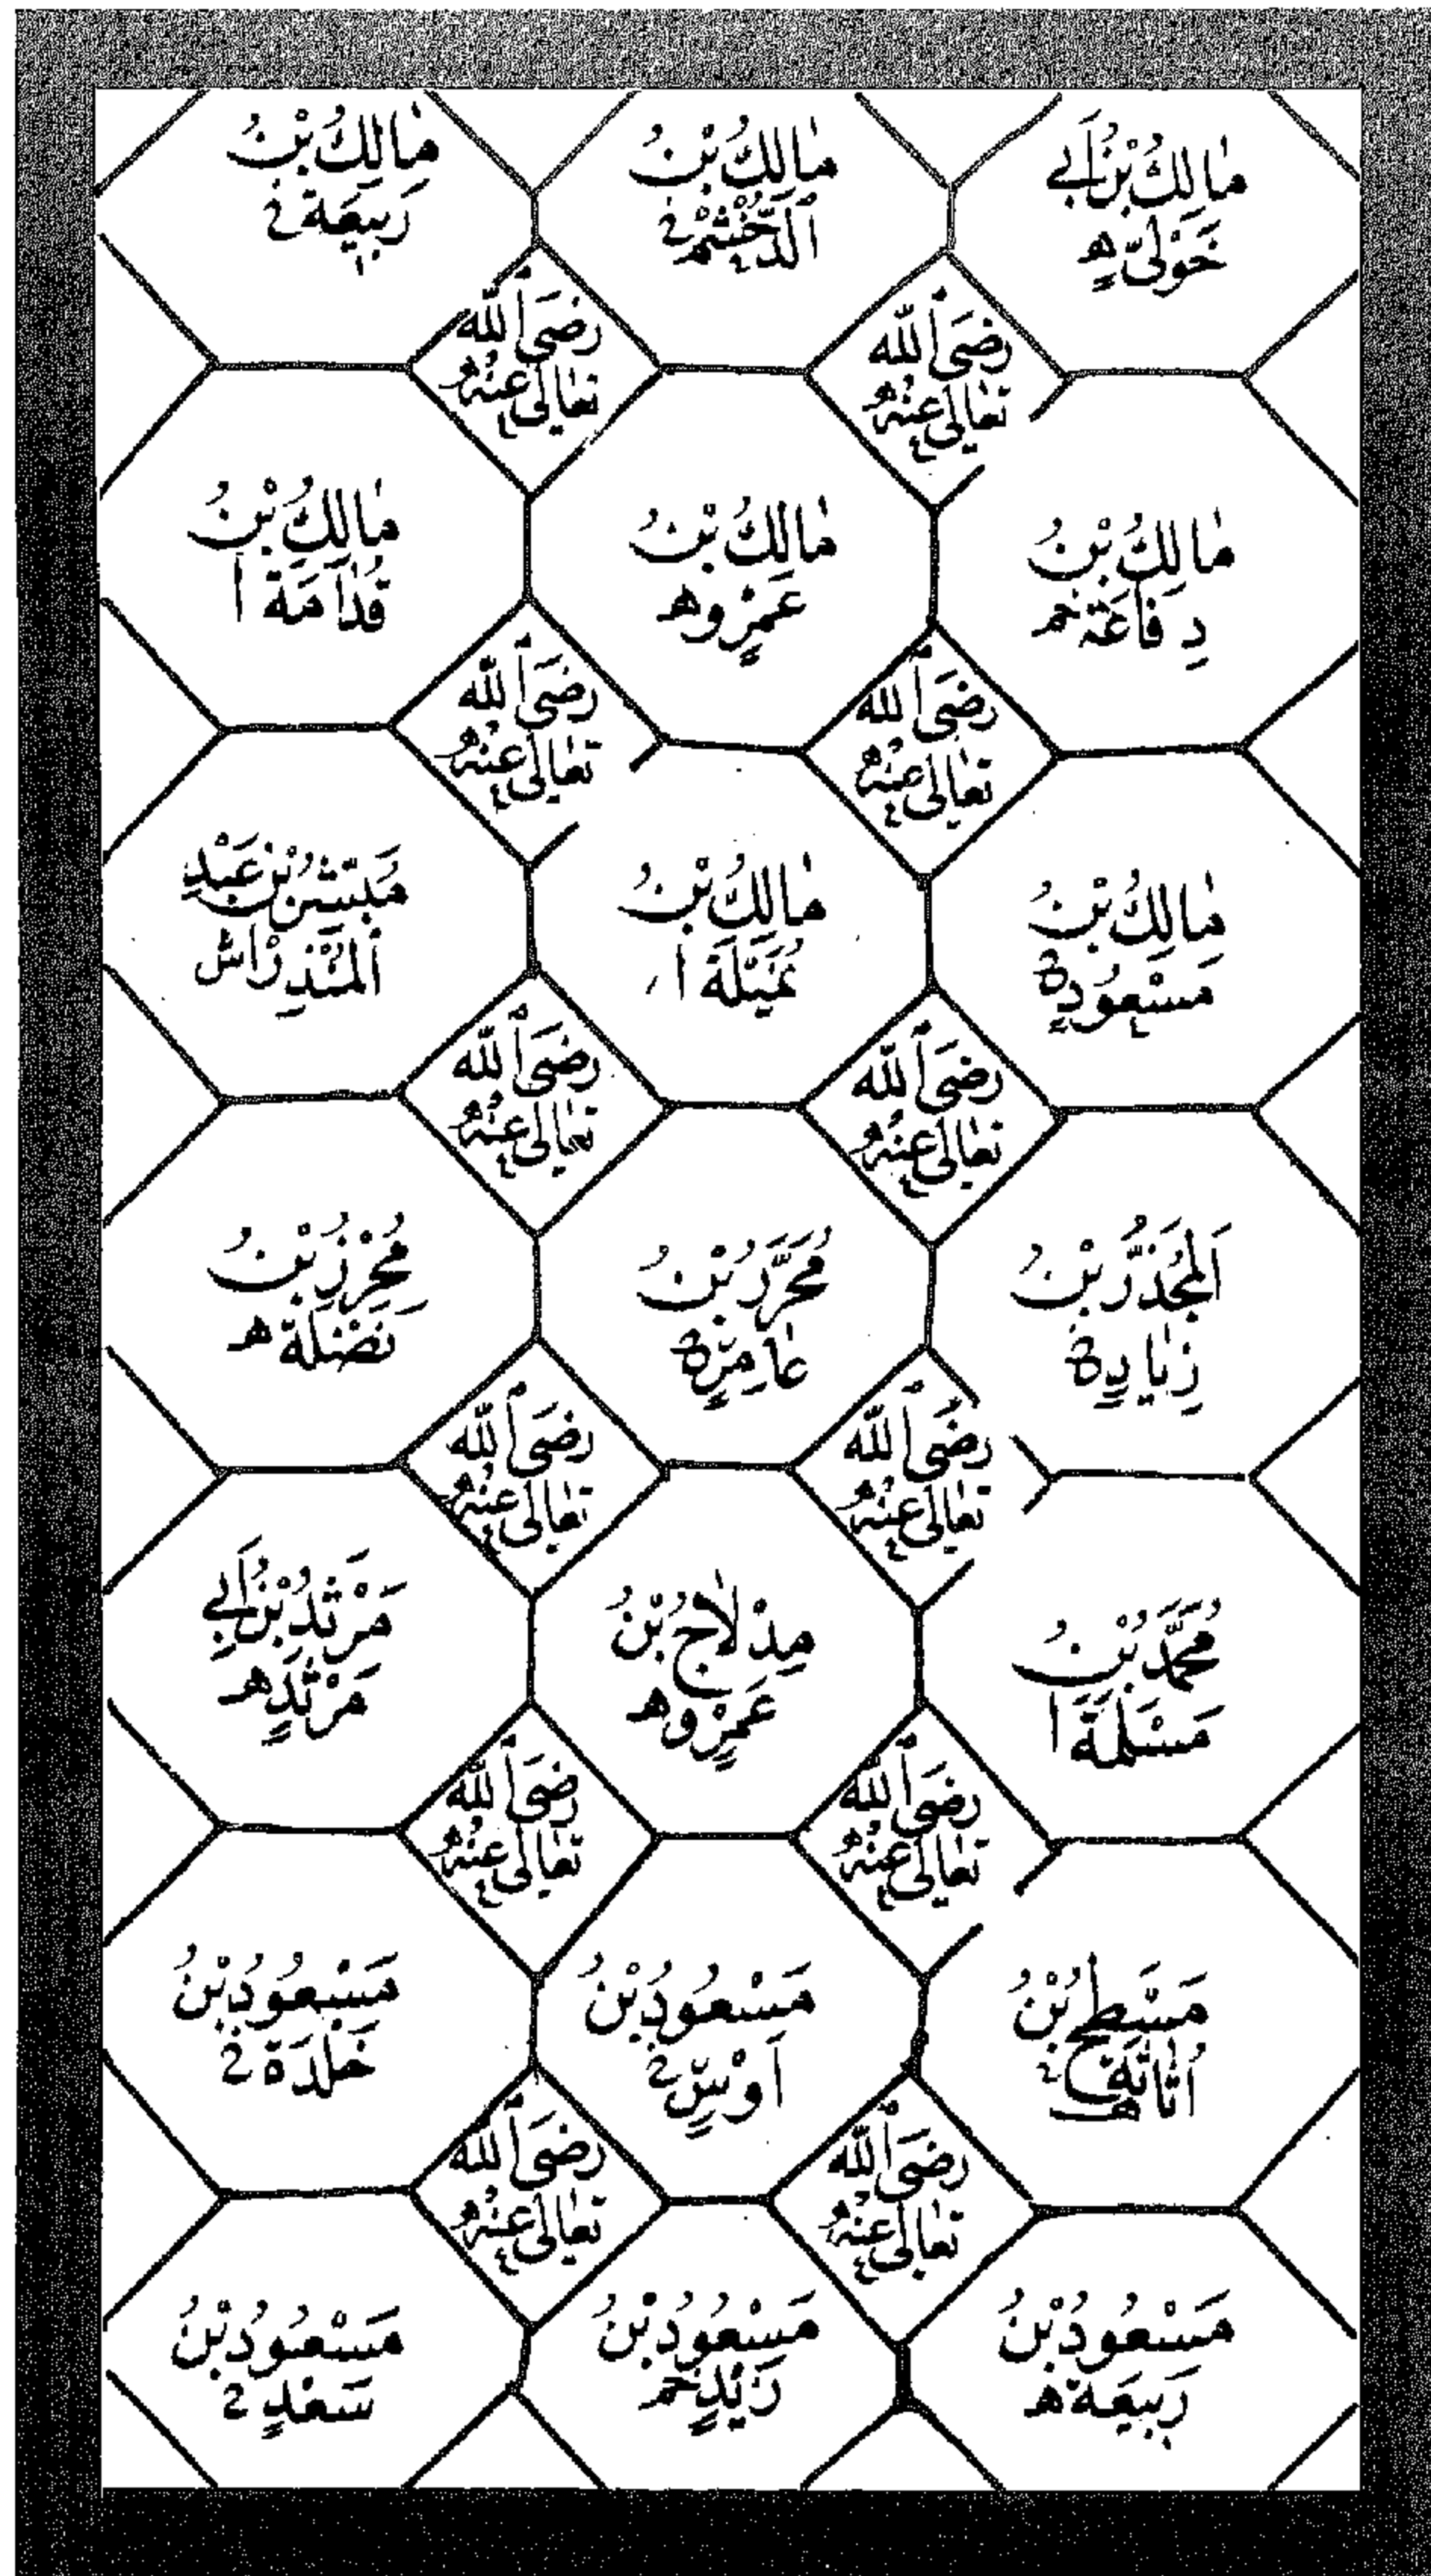 مَالِكُ بْنُ أَبِي
خَوْلِيٍّ ھ
مَالِكُ بْنُ
الدُّخْشُمْ خ
مَالِكُ بْنُ
رَبِيعَة خ
رَضِىَ اللّٰه
تَعَالىٰ عَنْهُ
رَضِىَ اللّٰه
تَعَالىٰ عَنْهُ
مَالِكُ بْنُ
رِفَاعَة خم
مَالِكُ بْنُ
عَمْرٍو ھ
مَالِكُ بْنُ
قُدَامَة ا
رَضِىَ اللّٰه
تَعَالىٰ عَنْهُ
رَضِىَ اللّٰه
تَعَالىٰ عَنْهُ
مَالِكُ بْنُ
مَسْعُودٍ
مَالِكُ بْنُ
نُمَيْلَة ا
مُبَشِّرُ بْنُ عَبْدِ
الْمُنْذِرْ اش
رَضِىَ اللّٰه
تَعَالىٰ عَنْهُ
رَضِىَ اللّٰه
تَعَالىٰ عَنْهُ
اَلْمُجَذَّرُ بْنُ
زِيَادٍ
مُحَرَّرُ بْنُ
عَامِرٍ
مُحْرِزُ بْنُ
نَضْلَة ھ
رَضِىَ اللّٰه
تَعَالىٰ عَنْهُ
رَضِىَ اللّٰه
تَعَالىٰ عَنْهُ
مُحَمَّدُ بْنُ
مَسْلَمَة ا
مِدْلَاجُ بْنُ
عَمْرٍو ھ
مَرْثَدُ بْنُ أَبِي
مَرْثَدٍ ھ
رَضِىَ اللّٰه
تَعَالىٰ عَنْهُ
رَضِىَ اللّٰه
تَعَالىٰ عَنْهُ
مِسْطَحُ بْنُ
اُثَاثَة ھ
مَسْعُودُ بْنُ
اَوْسٍ خ
مَسْعُودُ بْنُ
خَلْدَة خ
رَضِىَ اللّٰه
تَعَالىٰ عَنْهُ
رَضِىَ اللّٰه
تَعَالىٰ عَنْهُ
مَسْعُودُ بْنُ
رَبِيعَة ھ
مَسْعُودُ بْنُ
زَيْدٍ خم
مَسْعُودُ بْنُ
سَعْدٍ خ